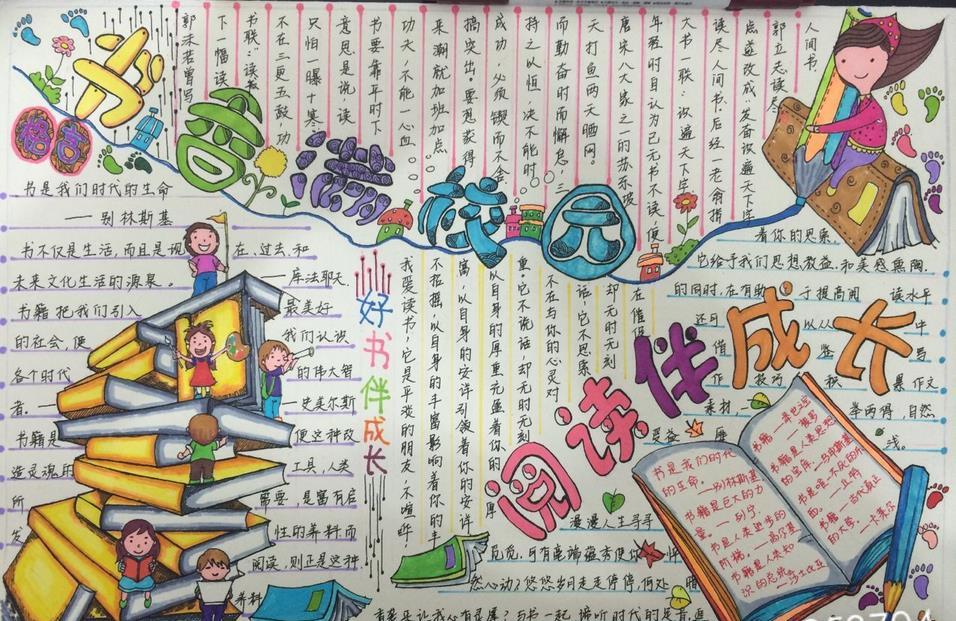 书香满校园
书香
人间书
郭立志读尽
点益改成"发奋识遍天下字
读尽人间书。后经一老翁指
大书一联:"识遍天下字
年轻时自认为已无书不读,便
唐宋八大家之一的苏东坡
天打鱼两天晒网。
而勤奋时而懈怠,三
持之以恒,决不能时
成功,必须锲而不舍
搞突出。要想获得
来潮就加班加点
功夫,不能一心血
书要靠平时下
意思是说,读
只怕一曝十寒
不在三更五鼓,功
书联:"读书
下一幅读
郭沫若曾写
书是我们时代的生命
——别林斯基
书不仅是生活,而且是现 在、过去和
未来文化生活的源泉。 ——库法耶夫
书籍把我们引入 最美好
的社会,使 我们认识
各个时代 的伟大智
者。 —史美尔斯
书籍是 便这种改
造灵魂所 工具。人类
所 需要,是富有启
发 性的养料而
阅读,则正是这种
养料
好书伴成长
在值得
却无时无刻
话,它不思索
不在与你的心灵对
重。它不说话,却无时无刻
以自身的厚重充盈着你的厚
富,以自身的安详引领着你的安详
不招摇,以自身的丰富影响着你的丰
我爱读书,它是平淡的朋友,不喧哗
阅读伴成长
着你的思索
它给予我们思想教益,和美感熏陶
的同时,在有助 于提高阅 读水平
还可 以从 中
借 鉴 写
作 技巧 积 累作文
素材, 举两得,自然
受益 浅。
漫漫人生寻寻
觅觅,可有蓦
然心动?悠悠岁月走走停停,何处
与书一起,谛听时代的足音
书是我们时代
的生命。——别林斯基
书籍是巨大的力
量。——列宁
书是人类进步的
阶梯。——高尔基
书籍是人类知
识的总统。——莎士比亚